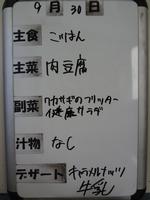 9月30日
主食 ごはん
主菜 肉豆腐
副菜 ワカサギのフリッター
健康サラダ
汁物 なし
デザート キャラメルナッツ
牛乳